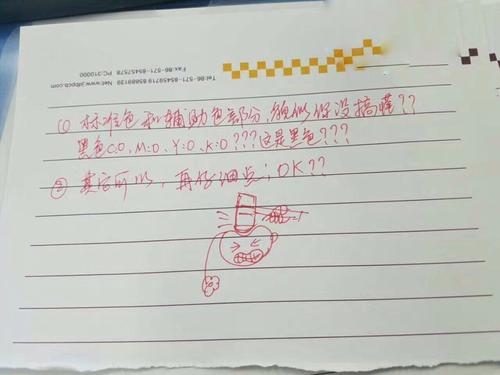 Tel:86-571-85459719 85889139 Net:www.jstbpcb.com
Fax:86-571-85457578 PC:310000
(1) 标准色和辅助色部分，貌似你没搞懂??
黑色C:0、M:0、Y:0、K:0???这是黑色???
② 其它可以，再仔细点；OK??